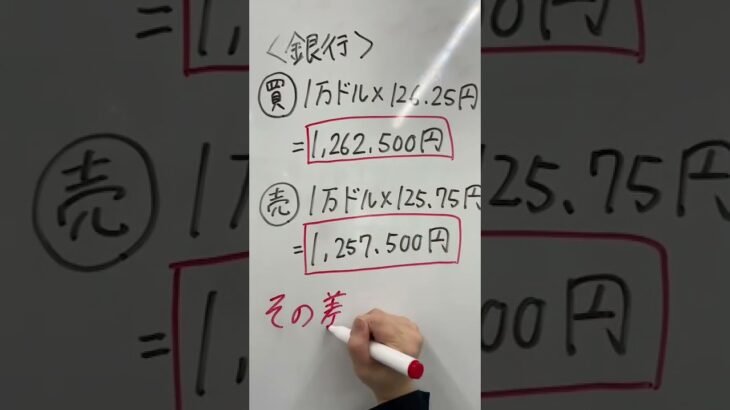 〈銀行〉
買 1万ドル×126.25円
=1,262.500円
売 1万ドル×125.75円
=1,257.500円
その差